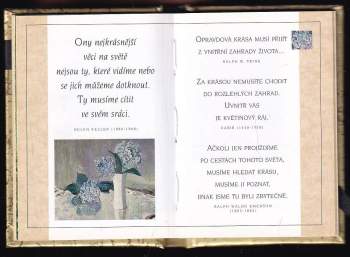 Ony nejkrásnější
věci na světě
nejsou ty, které vidíme nebo
se jich můžeme dotknout.
Ty musíme cítit
ve svém srdci.
HELEN KELLER (1880-1968)
OPRAVDOVÁ KRÁSA MUSÍ PŘIJÍT
Z VNITŘNÍ ZAHRADY ŽIVOTA...
RALPH W. TRINE
ZA KRÁSOU NEMUSÍTE CHODIT
DO ROZLEHLÝCH ZAHRAD.
UVNITŘ VÁS
JE KVĚTINOVÝ RÁJ.
KABÍR (1440-1518)
AČKOLI JEN PROJÍŽDÍME
PO CESTÁCH TOHOTO SVĚTA,
MUSÍME HLEDAT KRÁSU,
MUSÍME JI POZNAT,
JINAK JSME TU BYLI ZBYTEČNĚ.
RALPH WALDO EMERSON
(1803-1882)